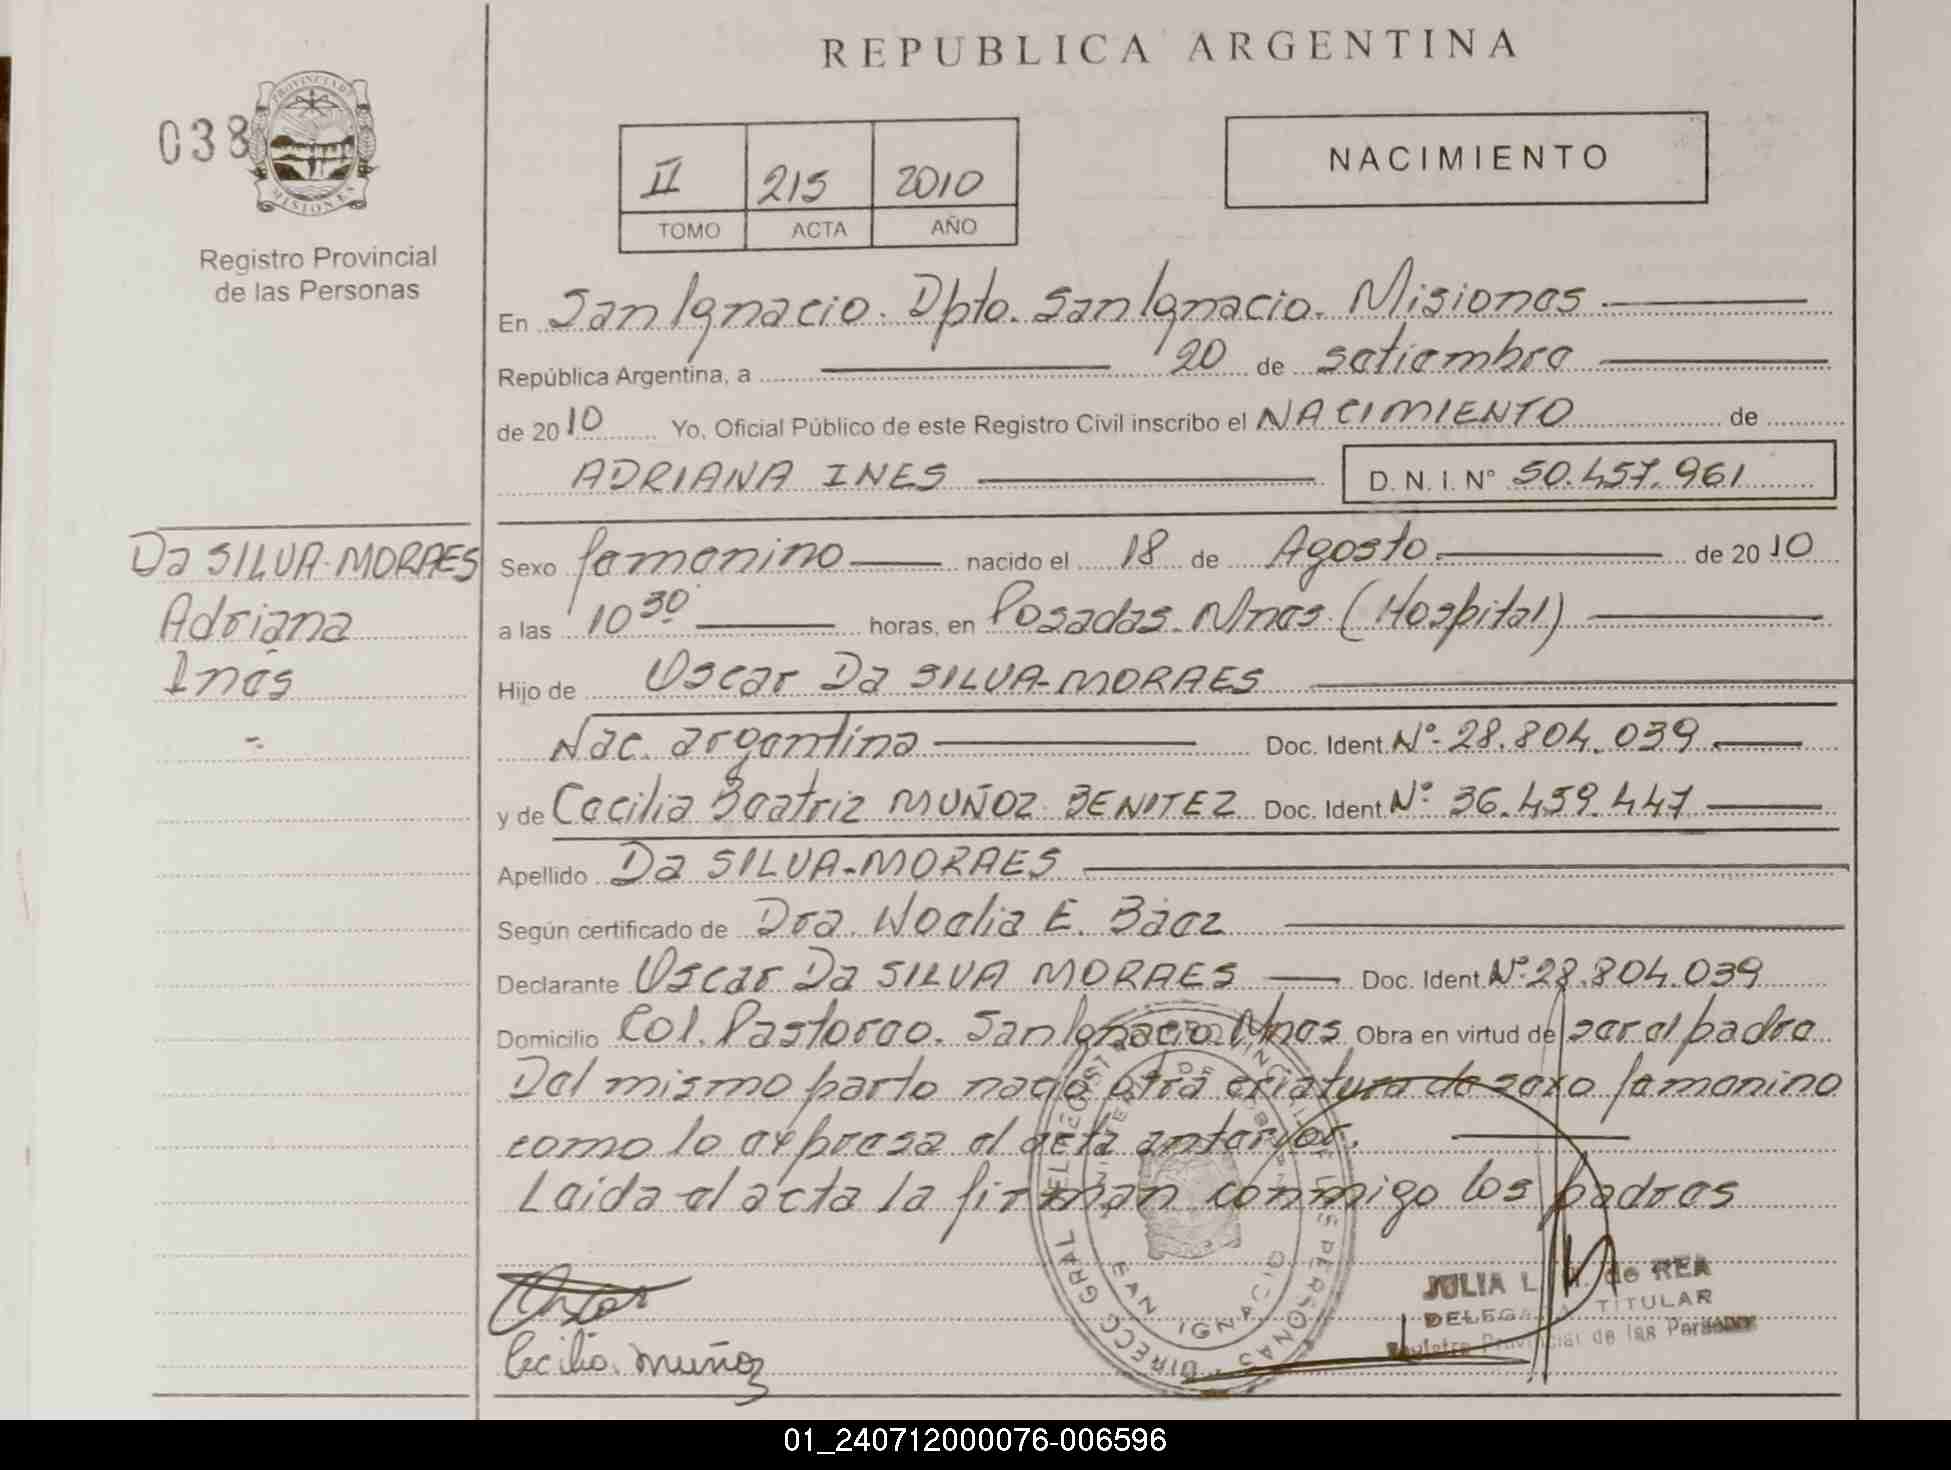 REPUBLICA ARGENTINA
038
PROVINCIA DE
MISIONES
Registro Provincial
de las Personas
II 215 2010
TOMO ACTA AÑO
NACIMIENTO
En San Ignacio. Dpto. San Ignacio. Misiones
República Argentina, a 20 de setiembre
de 2010 Yo, Oficial Público de este Registro Civil inscribo el NACIMIENTO de
ADRIANA INES D. N. I. N° 50.457.961
Da SILVA-MORAES
Adriana
Inés
Sexo femenino nacido el 18 de Agosto. de 2010
a las 10 30 horas, en Posadas. Mnes. (Hospital)
Hijo de Oscar Da SILVA-MORAES
Nac. argentina Doc. Ident. N°- 28.804.039
y de Cecilia Beatriz MUÑOZ BENITEZ Doc. Ident. N° 36.459.447
Apellido Da SILVA-MORAES
Según certificado de Dra. Noelia E. Báez
Declarante Oscar Da SILVA MORAES Doc. Ident. N°-28.804.039
Domicilio Col. Pastoreo. San Ignacio. Mnes Obra en virtud de ser el padre
Del mismo parto nació otra criatura de sexo femenino
como lo expresa el acta anterior.
Leída el acta la firman conmigo los padres
Cecilia Muñoz
SAN IGNACIO
JULIA L. de REA
DELEGADA TITULAR
Registro Provincial de las Personas
01_240712000076-006596